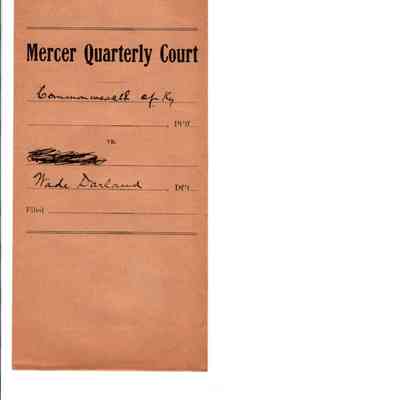 Mercer Quarterly Court
Commonwealth of Ky
, Pltff.
vs.
Wade Darland, Dft.
Filed